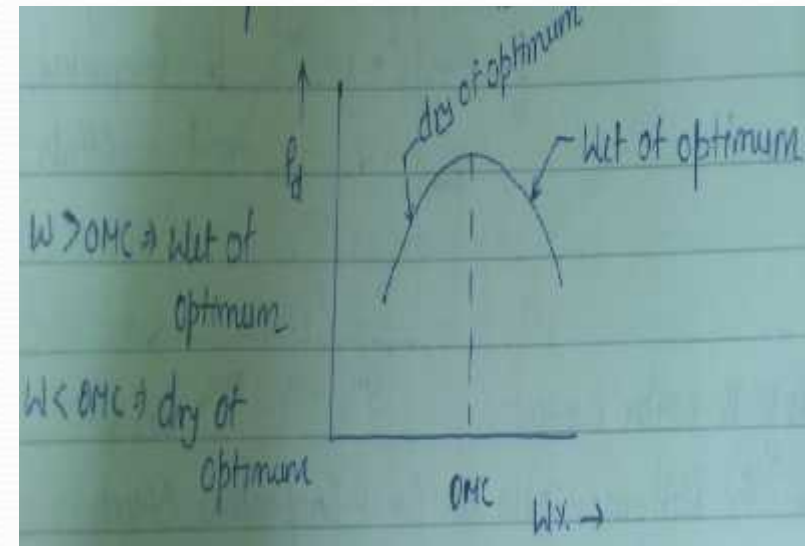 dry of optimum
ρd
Wet of optimum
W > OMC ⇒ Wet of
optimum
W < OMC ⇒ dry of
optimum
OMC
W% →